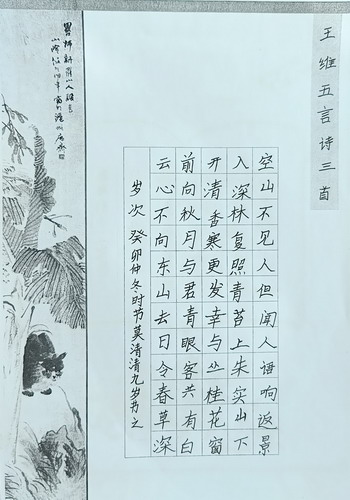 王维五言诗三首
空山不见人但闻人语响返景
入深林复照青苔上朱实山下
开清香寒更发幸与丛桂花窗
前向秋月与君青眼客共有白
云心不向东山去日令春草深
岁次癸卯仲冬时节莫清清九岁书之